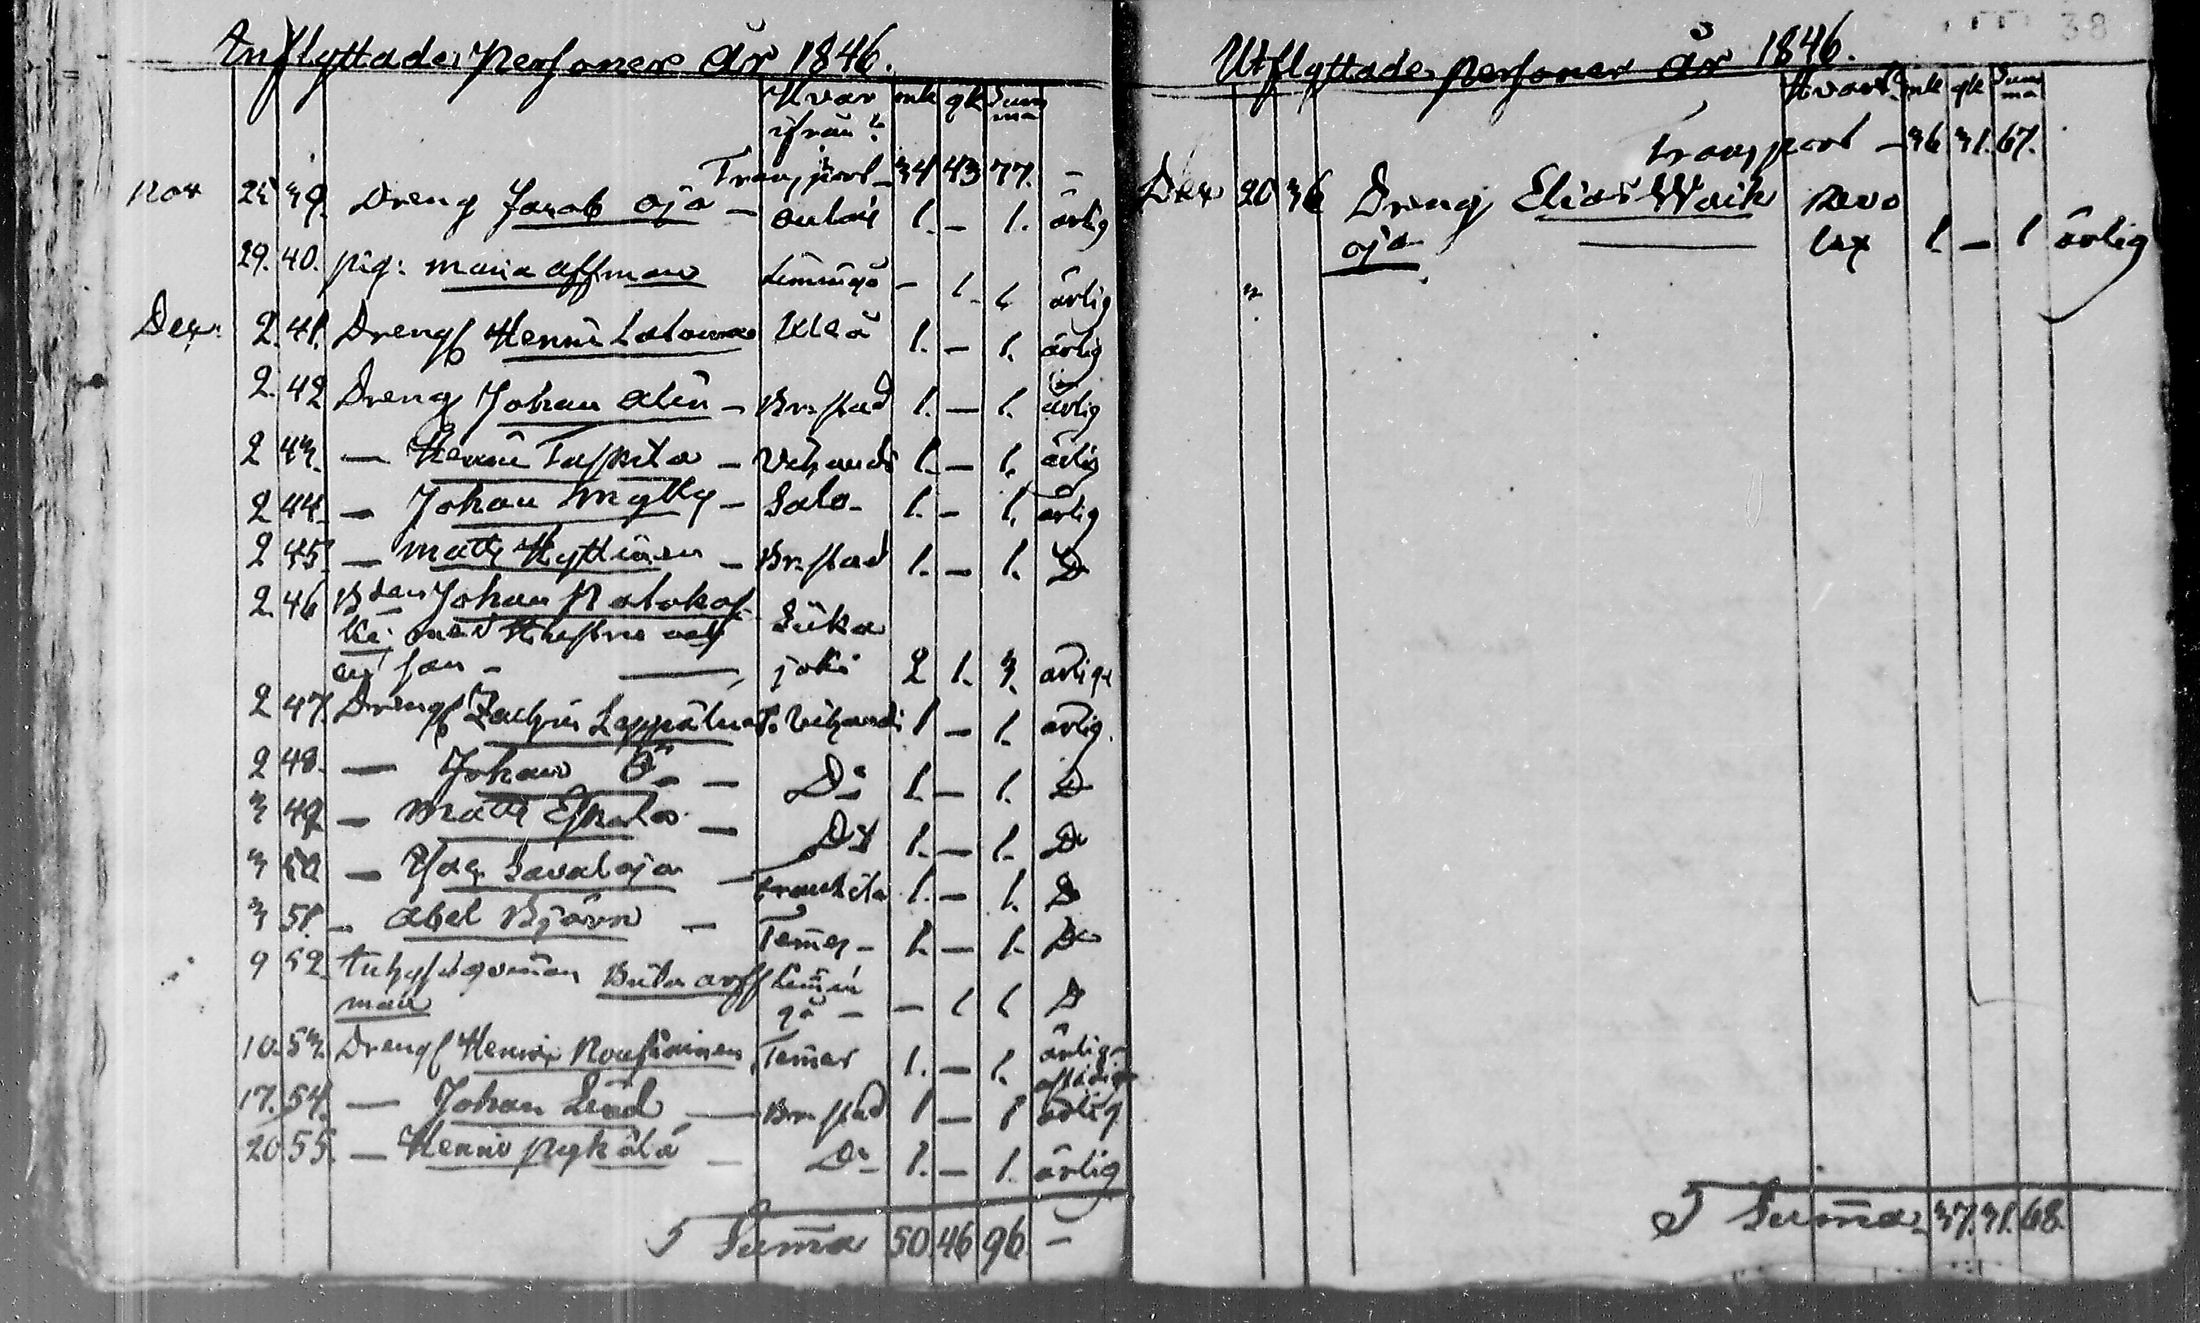 Inflyttade Personer År 1846.
Hvar ifrån? mk qk Summa
Transport - 34 43 77. -
Nov 25 39. Dreng Jacob Oja - 1. - 1. ärlig
29. 40. pig: Maria Affman Limingo - 1 1 ärlig
Dec. 2. 41. Drengf Henric Uleå 1. - 1. ärlig
2. 42 Dreng Johan Alin - Br.stad 1. - 1. ärlig
2 43. - Henric - Vihandi 1. - 1. ärlig
2 44. - Johan Mylly - Salo - 1. - 1. ärlig
2 45. - Matts Hyttinen - Br.stad 1. - 1. D
2. 46 Johan
med Hustru och Siika
en son - joki 2 1. 3. ärliga
2 47. Drengf Zachris P. Vihandi 1 - 1. ärlig.
2 48. - Johan - Do 1. - 1. D
3 49 - Matts - Do 1. - 1. D
3 50 - Isac Savaloja - Frantsila 1. - 1. D
3 51. - Abel Björn - Temes - 1. - 1. D
9 52. Brita Aff Limin
man gå - - 1 1 D
10. 53. Drengf Henric Temes 1. - 1. ärlig
17. 54. - Johan Lind - Br.stad 1 - 1 ärlig
20 55. - Henric Pyhälä - Do 1. - 1. ärlig
Suma 50 46 96 -
38
Utflyttade Personer År 1846.
Hvart? mk qk Summa
Transport - 36 31. 67.
Dec 20 36 Dreng Elias Waik Revo
oja - lax 1 - 1 ärlig
Suma 37. 31. 68.